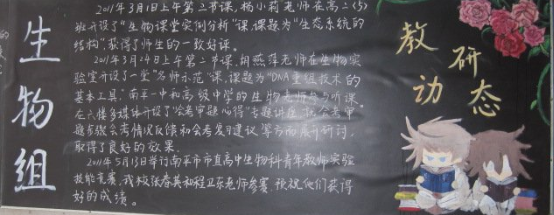 生物组
2011年3月1日上午第二节课,杨小莉老师在高二(5)
班开设了"生物课堂实例分析"课,课题为"生态系统的
结构",获得了师生的一致好评。
2011年3月24日上午第二节课,胡燕萍老师在生物实
验室开设了一堂"名师示范"课,课题为"DNA重组技术的
基本工具",南平一中和高级中学的生物老师参与听课
在六楼多媒体开设了"会考审题心得"专题讲座
会考情况反馈和会考复习建议等方面展开研讨,
取得了良好的效果。
2011年5月13日举行南平市市直高中生物科青年教师实验
技能竞赛,我校张春英和程卫东老师参赛 预祝他们获得
好的成绩。
教研
动态